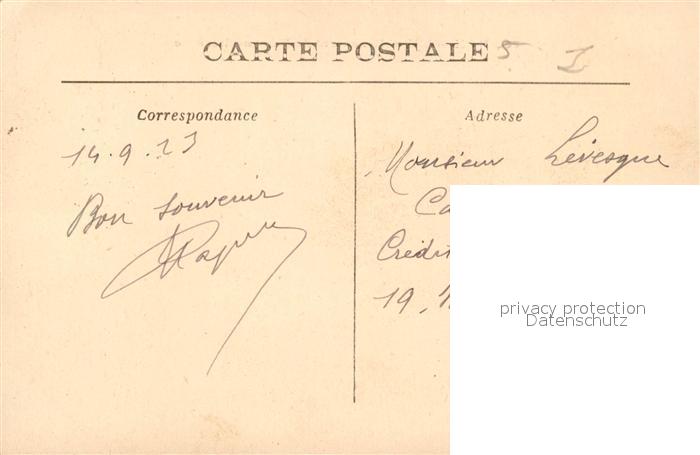 CARTE POSTALE
5 I
Correspondance
Adresse
14.9.23
Bon souvenir
Monsieur Lévesque
Ca
Crédi
19,
privacy protection
Datenschutz